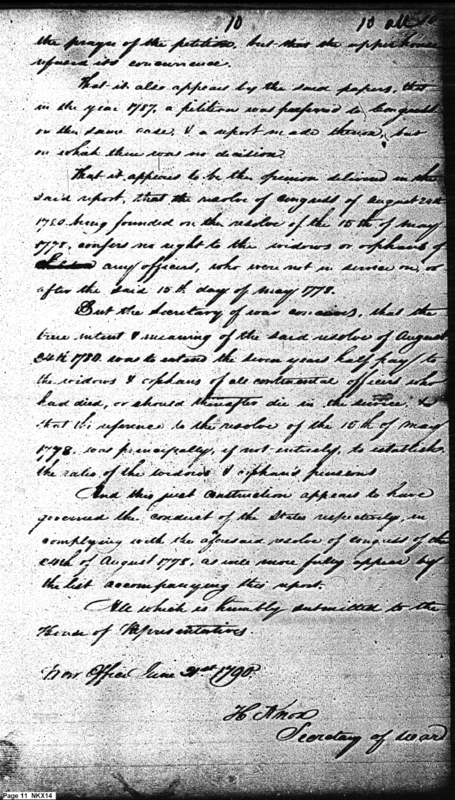 10 10
the prayer of the petition, but that the upper house
refused its concurrence.
That it also appears by the said papers, that
in the year 1787, a petition was preferred to Congress
on the same case, & a report made thereon, but
on which there was no decision.
That it appears to be the opinion delivered in the
said report, that the resolve of congress of August 24th
1780 being founded on the resolve of the 15th of may
1778, confers no right to the widows or orphans of
any officers, who were not in service on, or
after the said 15th day of may 1778.
But the Secretary of war conceives, that the
true intent & meaning of the said resolve of August
24th 1780. was to extend the seven years half pay to
the widows & orphans of all continental officers who
had died, or should thereafter die in the service, &
that the reference to the resolve of the 15th of may
1778. was principally, if not entirely, to establish
the ratio of the widows & orphans pensions
And this just construction appears to have
governed the conduct of the States respectively, in
complying with the aforesaid resolve of congress of the
24th of August 1778, as will more fully appear by
the list accompanying this report.
All which is humbly submitted to the
House of Representatives.
War Office June 21st 1790.
H Knox
Secretary of war
Page 11 NKX14